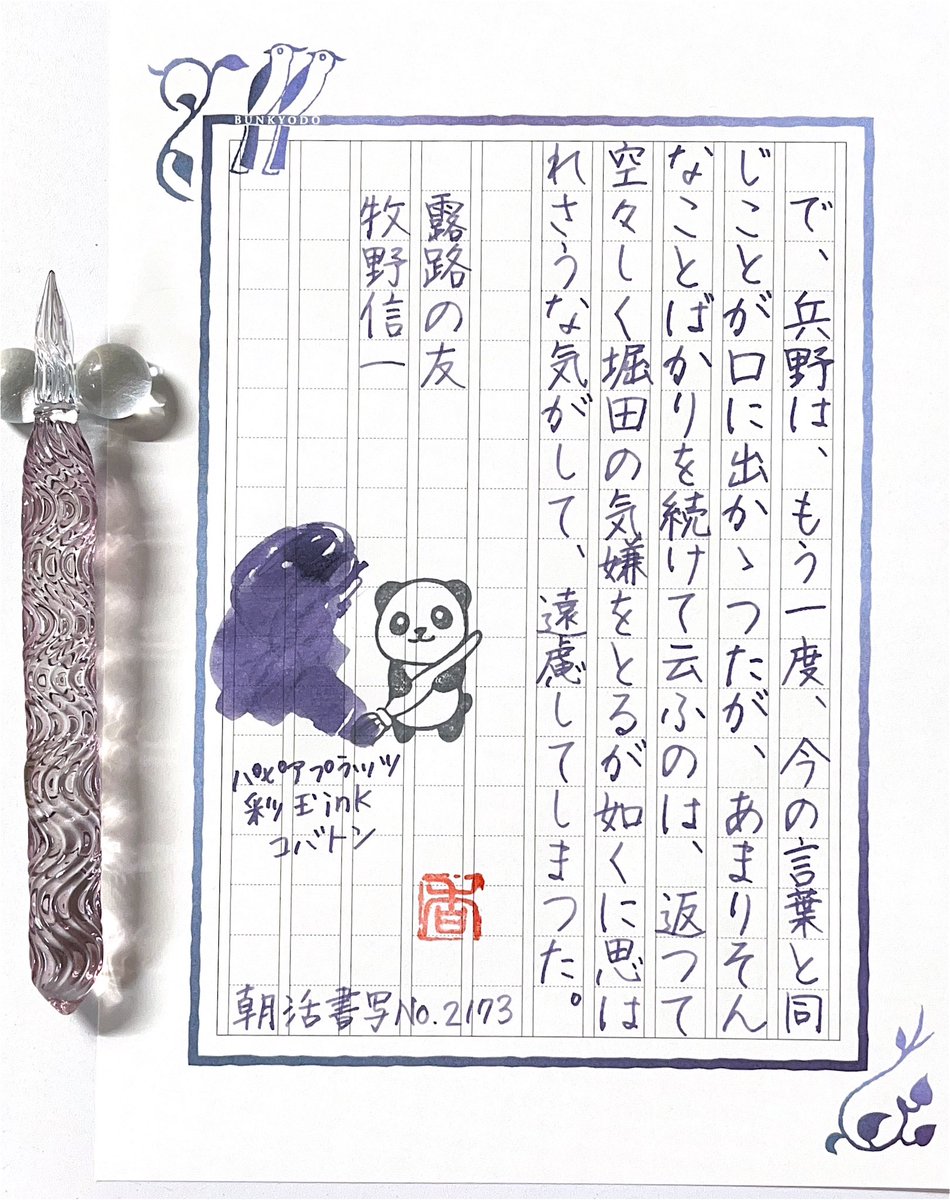 BUNKYODO
で、兵野は、もう一度、今の言葉と同
じことが口に出かゝつたが、あまりそん
なことばかりを続けて云ふのは、返つて
空々しく堀田の気嫌をとるが如くに思は
れさうな気がして、遠慮してしまつた。
露路の友
牧野信一
パピアプラッツ
彩玉ink
コバトン
香
朝活書写No.2173